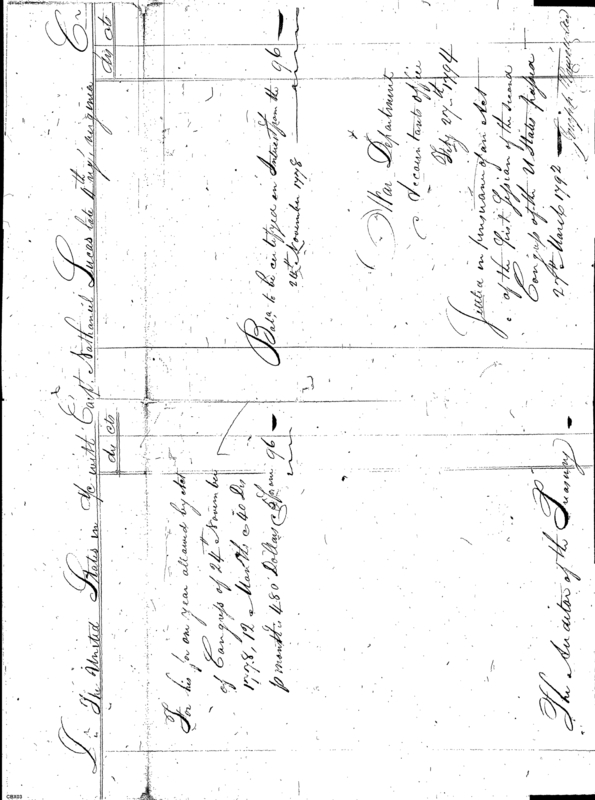 Dr. The United States in a/c with Capt. Nathaniel Lucas late 4th regt. virginia Cr.
dls cts
For his for one year allowed by Act
of Congress of 24th November
1778, 12 Months @ 40 Drs
p month is 480 Dollars 96 —
dls cts
Bala. to be certified on Interest from the 96 —
24th November 1778
War Department
Accountants office
Feby 27th 1794
Settled in pursuance of an Act
of the first Session of the second
Congress of the U States passed
27th March 1792 —
Joseph
The Auditor of the Treasury —
CBX03